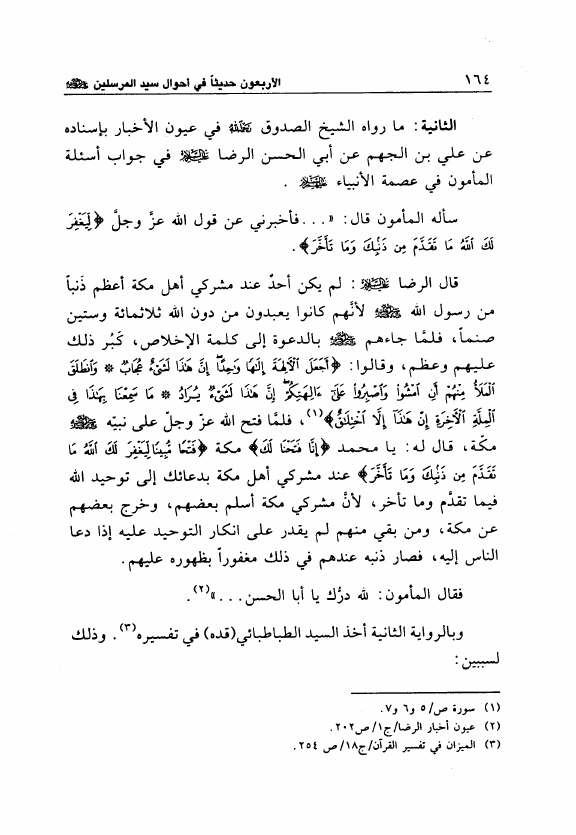 ١٦٤ الأربعون حديثاً في أحوال سيد المرسلين ﷺ
الثانية: ما رواه الشيخ الصدوق رَحِمَهُ ٱللَّٰهُ في عيون الأخبار بإسناده
عن علي بن الجهم عن أبي الحسن الرضا عَلَيْهِ ٱلسَّلَامُ في جواب أسئلة
المأمون في عصمة الأنبياء عَلَيْهِمُ ٱلسَّلَامُ .
سأله المأمون قال: «...فأخبرني عن قول الله عزَّ وجلَّ ﴿لِّيَغْفِرَ
لَكَ ٱللَّهُ مَا تَقَدَّمَ مِن ذَنۢبِكَ وَمَا تَأَخَّرَ﴾.
قال الرضا عَلَيْهِ ٱلسَّلَامُ : لم يكن أحدٌ عند مشركي أهل مكة أعظم ذَنباً
من رسول الله ﷺ لأنَّهم كانوا يعبدون من دون الله ثلاثمائة وستين
صنماً، فلمَّا جاءهم ﷺ بالدعوة إلى كلمة الإخلاص، كَبُر ذلك
عليهم وعظم، وقالوا: ﴿أَجَعَلَ ٱلْآلِهَةَ إِلَٰهًا وَٰحِدًا ۖ إِنَّ هَٰذَا لَشَىْءٌ عُجَابٌ * وَٱنطَلَقَ
ٱلْمَلَأُ مِنْهُمْ أَنِ ٱمْشُوا۟ وَٱصْبِرُوا۟ عَلَىٰٓ ءَالِهَتِكُمْ ۖ إِنَّ هَٰذَا لَشَىْءٌ يُرَادُ * مَا سَمِعْنَا بِهَٰذَا فِى
ٱلْمِلَّةِ ٱلْآخِرَةِ إِنْ هَٰذَآ إِلَّا ٱخْتِلَٰقٌ﴾(١)، فلمَّا فتح الله عزّ وجلّ على نبيّه ﷺ
مكّة، قال له: يا محمد ﴿إِنَّا فَتَحْنَا لَكَ﴾ مكة ﴿فَتْحًا مُّبِينًا لِّيَغْفِرَ لَكَ ٱللَّهُ مَا
تَقَدَّمَ مِن ذَنۢبِكَ وَمَا تَأَخَّرَ﴾ عند مشركي أهل مكة بدعائك إلى توحيد الله
فيما تقدَّم وما تأخر، لأنَّ مشركي مكة أسلم بعضهم، وخرج بعضهم
عن مكة، ومن بقي منهم لم يقدر على انكار التوحيد عليه إذا دعا
الناس إليه، فصار ذنبه عندهم في ذلك مغفوراً بظهوره عليهم.
فقال المأمون: لله درُّك يا أبا الحسن...»(٢).
وبالرواية الثانية أخذ السيد الطباطبائي(قده) في تفسيره(٣). وذلك
لسببين:
(١) سورة ص/٥ و٦ و٧.
(٢) عيون أخبار الرضا/ج١/ص٢٠٢.
(٣) الميزان في تفسير القرآن/ج١٨/ص ٢٥٤.